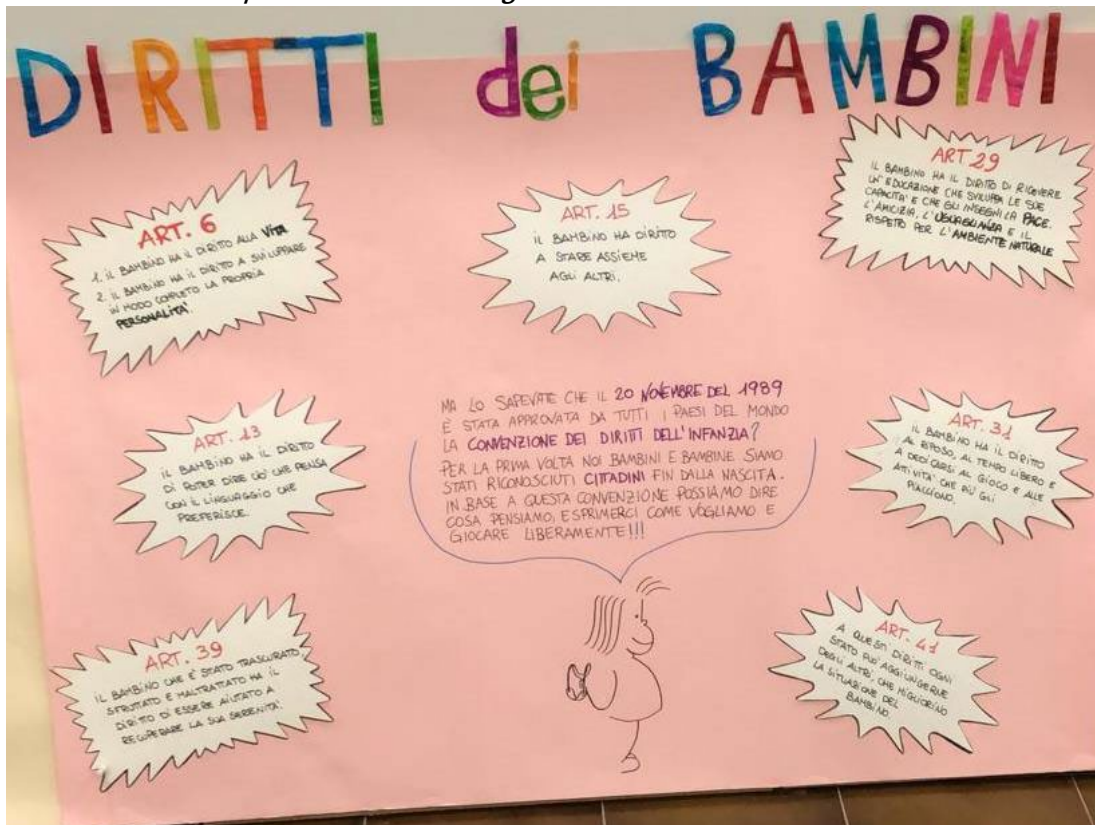 DIRITTI dei BAMBINI
ART. 6
1. IL BAMBINO HA IL DIRITTO ALLA VITA
2. IL BAMBINO HA IL DIRITTO A SVILUPPARE
IN MODO COMPLETO LA PROPRIA
PERSONALITA'.
ART. 15
IL BAMBINO HA DIRITTO
A STARE ASSIEME
AGLI ALTRI.
ART 29
IL BAMBINO HA IL DIRITTO DI RICEVERE
UN'EDUCAZIONE CHE SVILUPPA LE SUE
CAPACITA' E CHE GLI INSEGNI LA PACE.
L'AMICIZIA, L'USUAGLIANZA E IL
RISPETTO PER L'AMBIENTE NATURALE
ART. 13
IL BAMBINO HA IL DIRITTO
DI POTER DIRE CIO' CHE PENSA
CON IL LINGUAGGIO CHE
PREFERISCE.
MA LO SAPEVATE CHE IL 20 NOVEMBRE DEL 1989
E' STATA APPROVATA DA TUTTI I PAESI DEL MONDO
LA CONVENZIONE DEI DIRITTI DELL'INFANZIA?
PER LA PRIMA VOLTA NOI BAMBINI E BAMBINE SIAMO
STATI RICONOSCIUTI CITTADINI FIN DALLA NASCITA.
IN BASE A QUESTA CONVENZIONE POSSIAMO DIRE
COSA PENSIAMO, ESPRIMERCI COME VOGLIAMO E
GIOCARE LIBERAMENTE!!!
ART. 31
IL BAMBINO HA IL DIRITTO
AL RIPOSO, AL TEMPO LIBERO E
A DEDICARSI AL GIOCO E ALLE
ATTIVITA' CHE PIU' GLI
PIACCIONO.
ART. 39
IL BAMBINO CHE E' STATO TRASCURATO,
SFRUTTATO E MALTRATTATO HA IL
DIRITTO DI ESSERE AIUTATO A
RECUPERARE LA SUA SERENITA'.
ART. 41
A QUESTI DIRITTI OGNI
STATO PUO' AGGIUNGERNE
DEGLI ALTRI, CHE MIGLIORINO
LA SITUAZIONE DEL
BAMBINO.